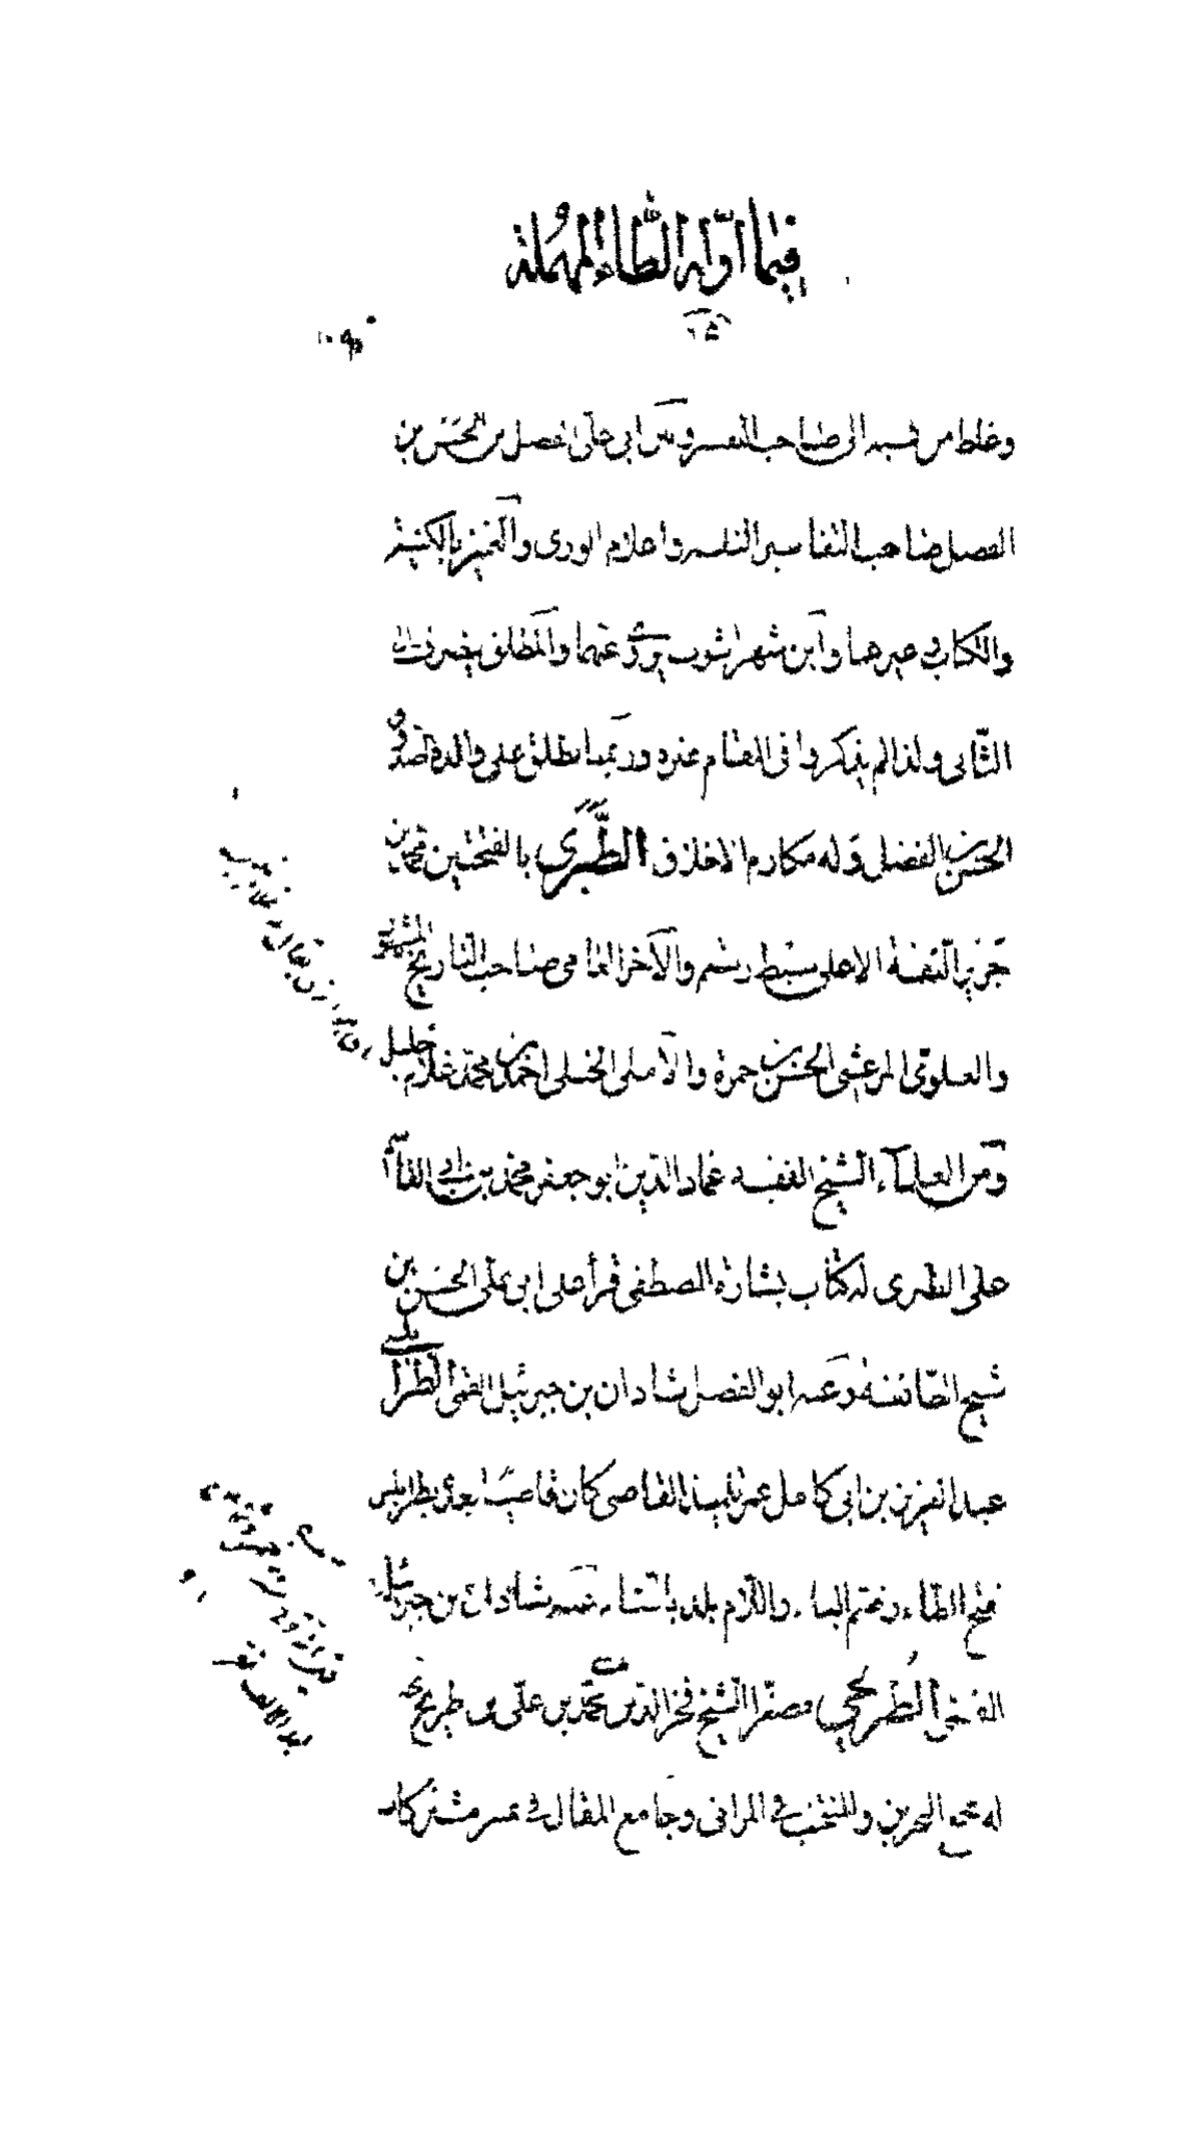 فيما اوّله الطّاء المهملة
وغلط من نسبه الى صاحب التفسير وبين ابى على الفضل بن الحسن بن
الفضل صاحب التفاسير النفيسة واعلام الورى والتمييز بالكنية
والكتاب وغيرهما وابن شهراشوب يروى عنهما والمطلق ينصرف الى
الثّانى ولذا لم يذكروا فى المقام غيره وربّما يطلق على والده
الحسن بن الفضل وله مكارم الاخلاق الطّبرى بالفتحتين محمّد بن
جرير الثقة الاعلى سبط رستم والآخر العامى صاحب التاريخ المشهور
والعلوىّ المرعشى الحسن بن حمزة والآملى الخليلى احمد بن محمّد غلام خليل
ومن العلماء الشيخ الفقيه عماد الدّين ابو جعفر محمّد بن ابى القاسم
على الطبرى له كتاب بشارة المصطفى قرأ على ابى على الحسن بن
شيخ الطّائفة وعنه ابو الفضل شاذان بن جبرئيل القمّى الطرابلسى
عبد العزيز بن ابى كامل عمر تلميذ القاضى كان قاضيا بعده بطرابلس
بفتح الطّاء وضمّ الباء واللّام بلدة بالشّام عنه شاذان بن جبرئيل
القمّى الطّريحى مصغّرا الشّيخ فخر الدّين محمّد بن على بن طريح
له مجمع البحرين والمنتخب فى المراثى وجامع المقال فى تمييز مشتركات